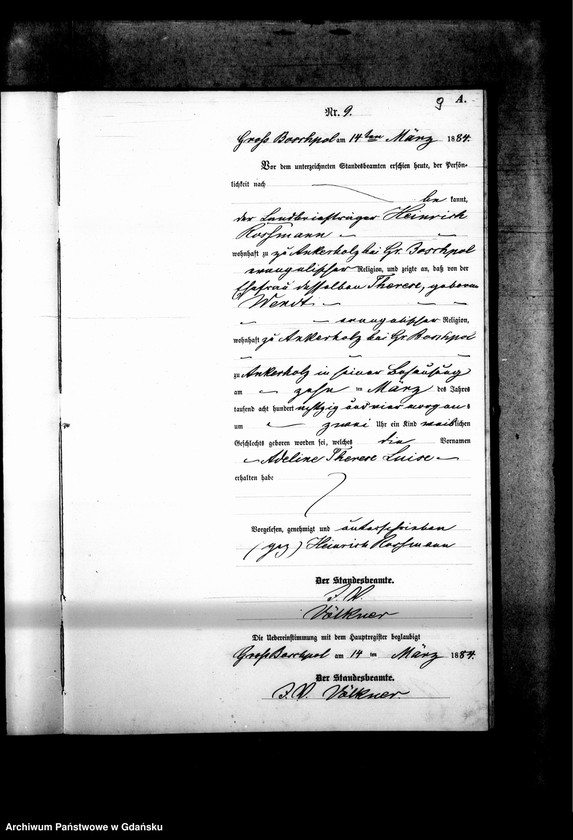 9 A.
Nr. 9.
Gross Boschpol am 14 ten März 1884.
Vor dem unterzeichneten Standesbeamten erschien heute, der Persön-
lichkeit nach
be kannt,
der Landbriefträger Heinrich
Rossmann
wohnhaft zu Ankerholz bei Gr. Boschpol
evangelischer Religion, und zeigte an, daß von der
Ehefrau desselben Therese, geborene
Wendt
evangelischer Religion,
wohnhaft zu Ankerholz bei Gr. Boschpol
zu Ankerholz in seiner Behausung
am zehn ten März des Jahres
tausend acht hundert achtzig und vier morgens
um zwei Uhr ein Kind weiblichen
Geschlechts geboren worden sei, welches die Vornamen
Adeline Therese Luise
erhalten habe
Vorgelesen, genehmigt und unterschrieben
(gez) Heinrich Rossmann
Der Standesbeamte.
I. V.
Völkner
Die Uebereinstimmung mit dem Hauptregister beglaubigt
Gross Boschpol am 14 ten März 1884.
Der Standesbeamte.
I. V. Völkner.
Archiwum Państwowe w Gdańsku